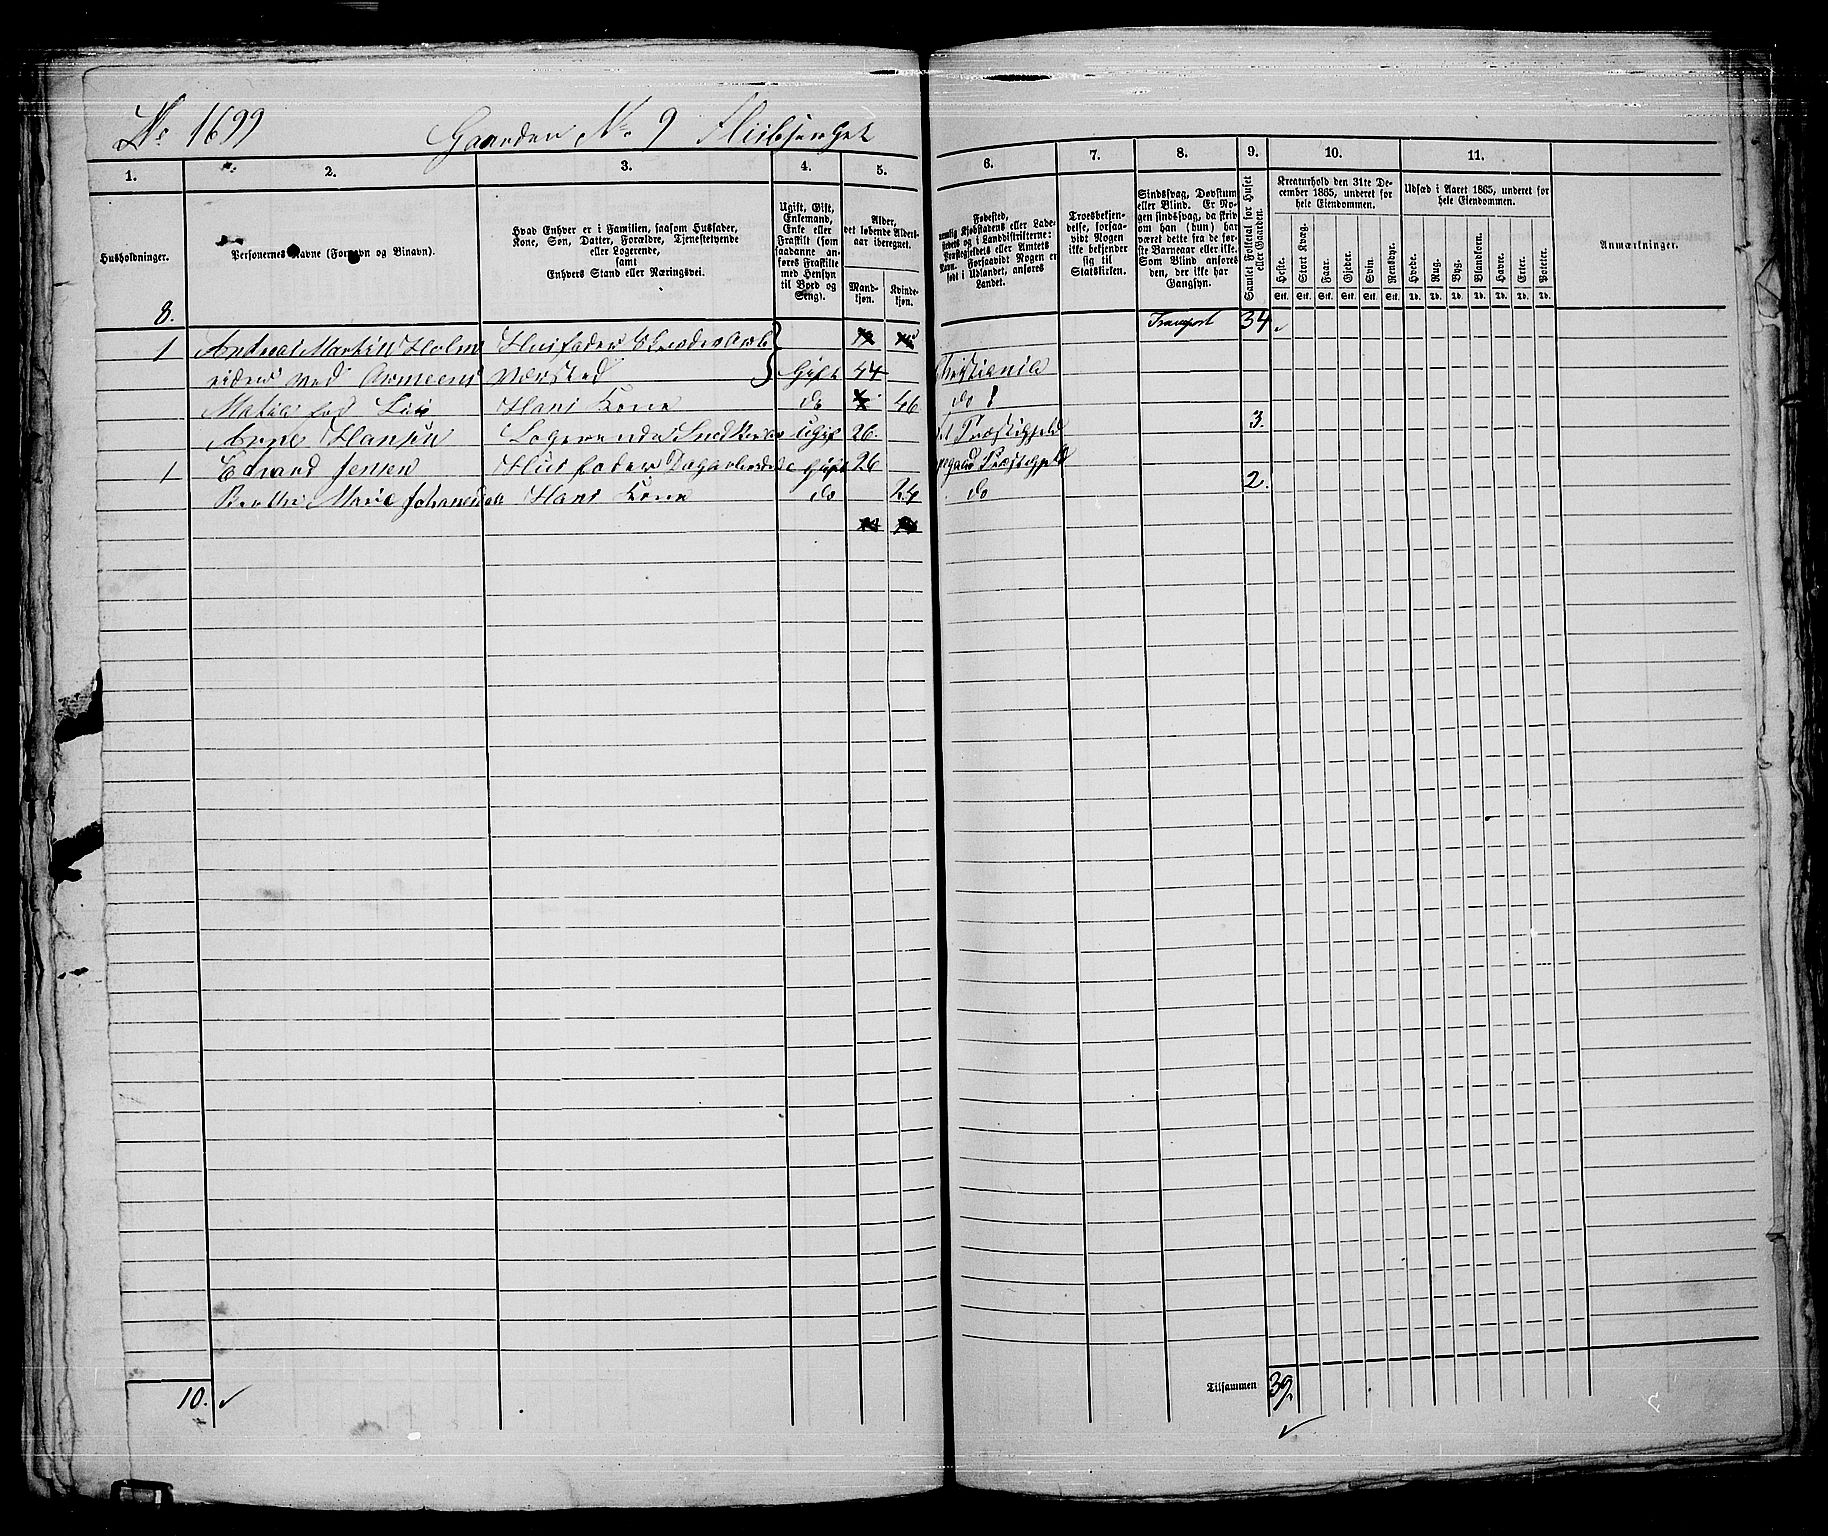 No 1699 Gaarden No. 9
1. 2. 3. 4. 5. 6. 7. 8. 9. 10. 11.
Husholdninger.
Personernes Navne (Fornavn og Binavn).
Hvad Enhver er i Familien, saasom Husfader,
Kone, Søn, Datter, Forældre, Tjenestetyende
eller Logerende,
samt
Enhvers Stand eller Næringsvei.
Ugift, Gift,
Enkemand,
Enke eller
Fraskilt (som
saadanne an-
føres Fraskilte
med Hensyn
til Bord og
Seng).
Alder,
det løbende Alders-
aar iberegnet.
Mand-
kjøn.
Kvinde-
kjøn.
Fødested,
nemlig Kjøbstadens eller Lade-
stedets og i Landdistrikterne
Præstegjeldets eller Amtets
Navn. Forsaavidt Nogen er
født i Udlandet, anføres
Landet.
Troesbekjen-
delse, forsaa-
vidt Nogen
ikke bekjender
sig til
Statskirken.
Sindssvag, Døvstum
eller Blind. Er No-
gen sindssvag, da skriv
om han (hun) har
været dette fra de før-
ste Barneaar eller ikke.
Som Blind anføres
den, der ikke har
Gangsyn.
Samlet Folketal for Huset
eller Gaarden.
Kreaturhold den 31te De-
cember 1865, underet for
hele Eiendommen.
Heste. Stort Kvæg. Faar. Gjeder. Svin. Rensdyr.
Stk. Stk. Stk. Stk. Stk. Stk.
Udsæd i Aaret 1865, underet for
hele Eiendommen.
Hvede. Rug. Byg. Blandkorn. Havre. Erter. Poteter.
Td. Td. Td. Td. Td. Td. Td.
Anmærkninger.
8. Transport 34
1 Andreas Martin Holm Husfader
ved Værsted Gift 44 Christiania
født Hans Kone do 46 do
Arne Hansen Logerende Ugift 26. Præstegjeld 3.
1 Edvard Jensen Husfader Gift 26 Præstegjeld
Berthe Marie Hans Kone do 24 do 2.
10. Tilsammen 39